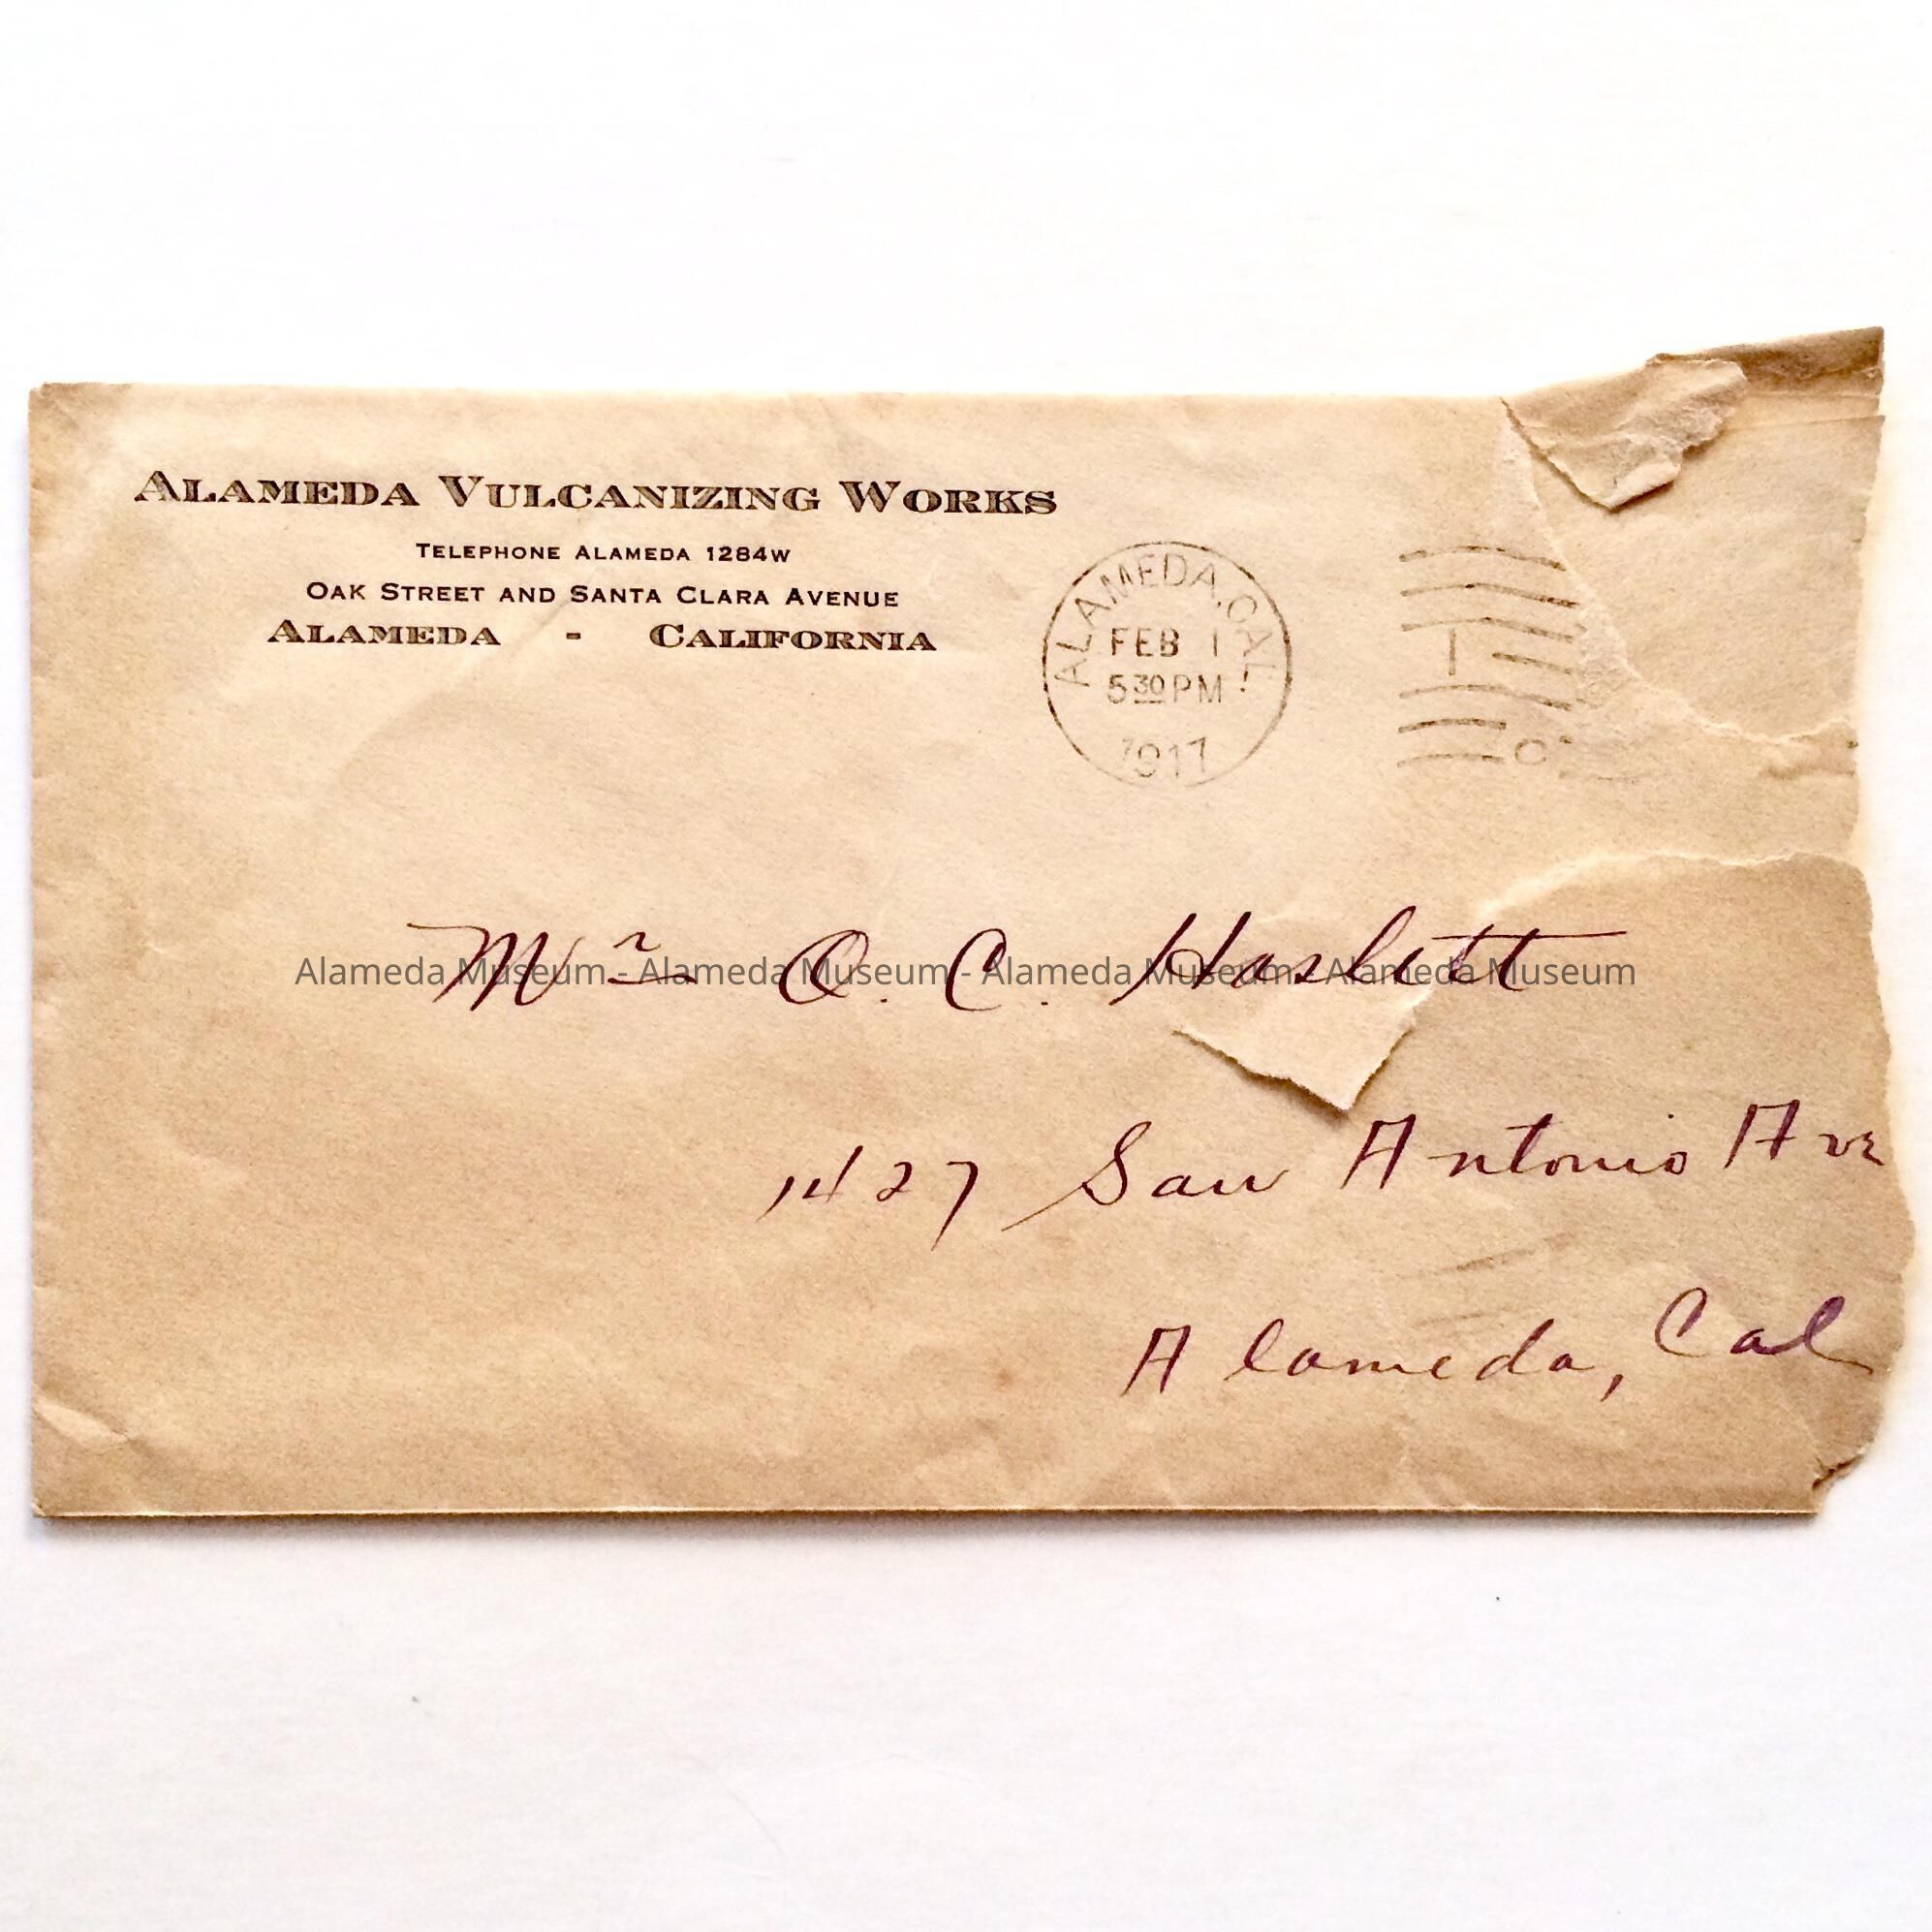 ALAMEDA VULCANIZING WORKS
TELEPHONE ALAMEDA 1284W
OAK STREET AND SANTA CLARA AVENUE
ALAMEDA - CALIFORNIA
ALAMEDA, CAL.
FEB 1
5 30 PM
1917
1
Mr O. C. Haslett
Alameda Museum - Alameda Museum - Alameda Museum - Alameda Museum
1427 San Antonio Ave
Alameda, Cal